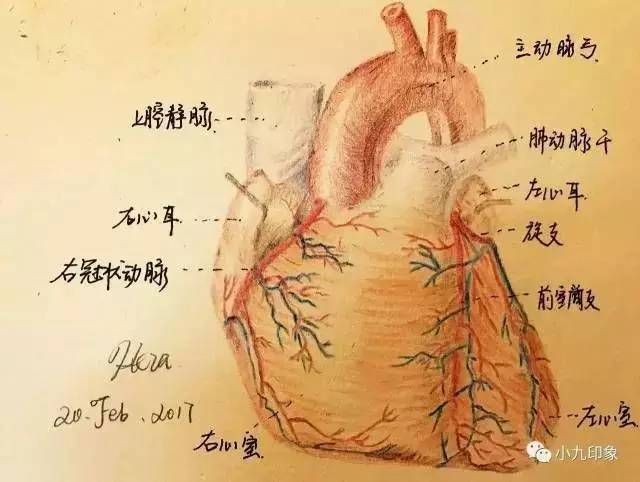 主动脉弓
上腔静脉
肺动脉干
左心耳
右心耳
旋支
右冠状动脉
前室间支
Hera
20. Feb. 2017
左心室
右心室
小九印象